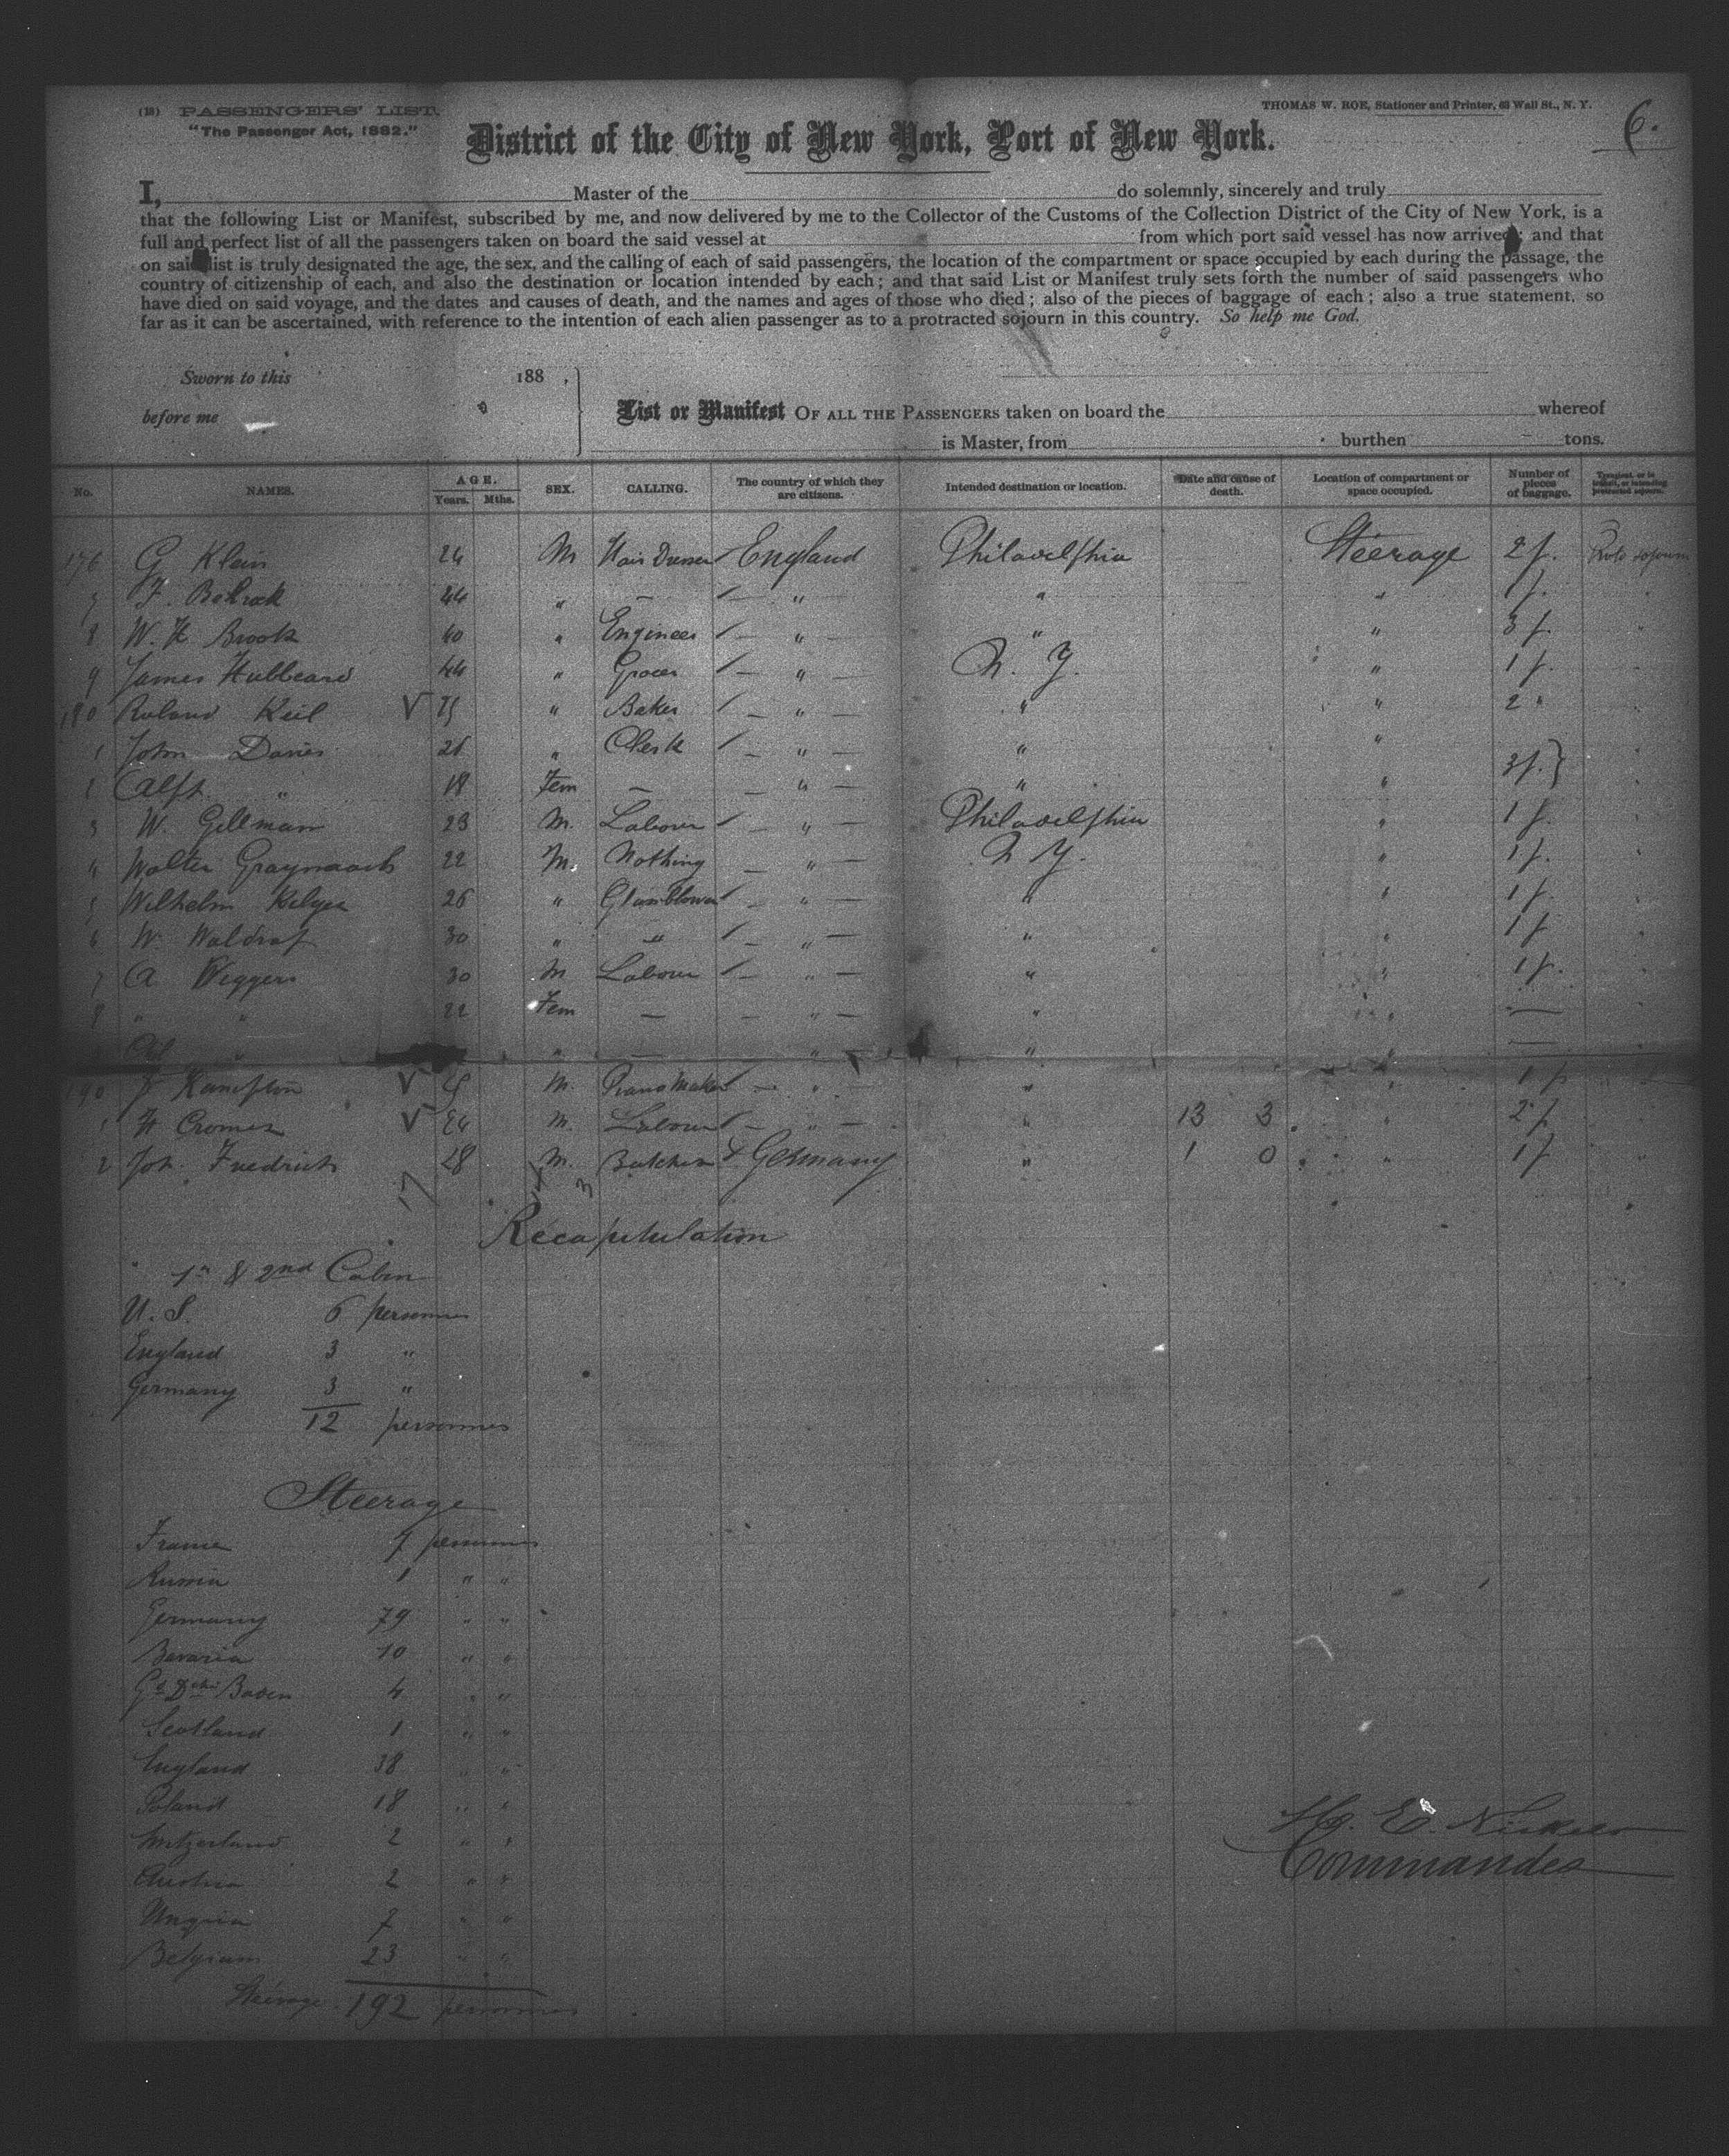 (18) PASSENGERS' LIST.
"The Passenger Act, 1882."
THOMAS W. ROE, Stationer and Printer, 63 Wall St., N. Y.
6.
District of the City of New York, Port of New York.
I, Master of the do solemnly, sincerely and truly
that the following List or Manifest, subscribed by me, and now delivered by me to the Collector of the Customs of the Collection District of the City of New York, is a
full and perfect list of all the passengers taken on board the said vessel at from which port said vessel has now arrived; and that
on said list is truly designated the age, the sex, and the calling of each of said passengers, the location of the compartment or space occupied by each during the passage, the
country of citizenship of each, and also the destination or location intended by each; and that said List or Manifest truly sets forth the number of said passengers who
have died on said voyage, and the dates and causes of death, and the names and ages of those who died; also of the pieces of baggage of each; also a true statement, so
far as it can be ascertained, with reference to the intention of each alien passenger as to a protracted sojourn in this country. So help me God.
Sworn to this 188 ,
before me
List or Manifest OF ALL THE PASSENGERS taken on board the whereof
is Master, from burthen tons.
No. NAMES. AGE. Years. Mths. SEX. CALLING. The country of which they are citizens. Intended destination or location. Date and cause of death. Location of compartment or space occupied. Number of pieces of baggage. Transient, or in transit, or intending protracted sojourn.
176 G Klein 24 M Hair Dresser England Philadelphia Steerage 2 p. sojourn
7 F. 44 " — " " " 1 p.
8 W. H Brook 40 " Engineer " " " 3 p. "
9 James Hubbeard 44 " Grocer " N. Y. " 1 p.
180 Roland Keil V 25 " Baker " " " 2 "
1 John Davies 26 " Clerk " " "
Alft " 18 Fem — " " " 3 p. }
3 W. Gellman 23 M. Labour " Philadelphia " 1 p.
4 Walter 22 M. Nothing " N Y. " 1 p.
5 Wilhelm 26 " Glassblower " " " 1 p.
6 W Waldraf 30 " " " " " 1 p
7 A Weggers 30 M Labour " " " 1 p.
8 " " 22 Fem — " " " —
" " — " " " —
190 Hampton V M. Piano Maker " " " 1 p
1 H Cromer V 24 M. Labour " " 13 3 " 2 p
2 Joh. Friedrich 28 M. Butcher Germany " 1 0 " 1 p
17
Recapitulation
1st & 2nd Cabin
U. S. 6 personnes
England 3 "
Germany 3 "
12 personnes
Steerage
France 7 personnes
Russia 1 " "
Germany 79 " "
Bavaria 10 " "
Baden 4 " "
Scotland 1 " "
England 38 " "
Poland 18 " "
Switzerland 2 " "
Austria 2 " "
Ungria 7 " "
Belgium 23 " "
Steerage 192 personnes
H. E. Nickels
Commander